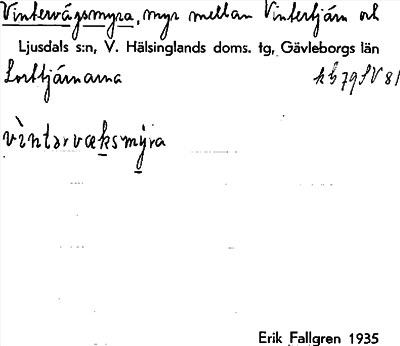 Vintervägsmyra, myr mellan Vintertjärn och
Ljusdals s:n, V. Hälsinglands doms. tg, Gävleborgs län
Lorttjärnarna
kb 79 SV 81
vìntərvæksmýra
Erik Fallgren 1935